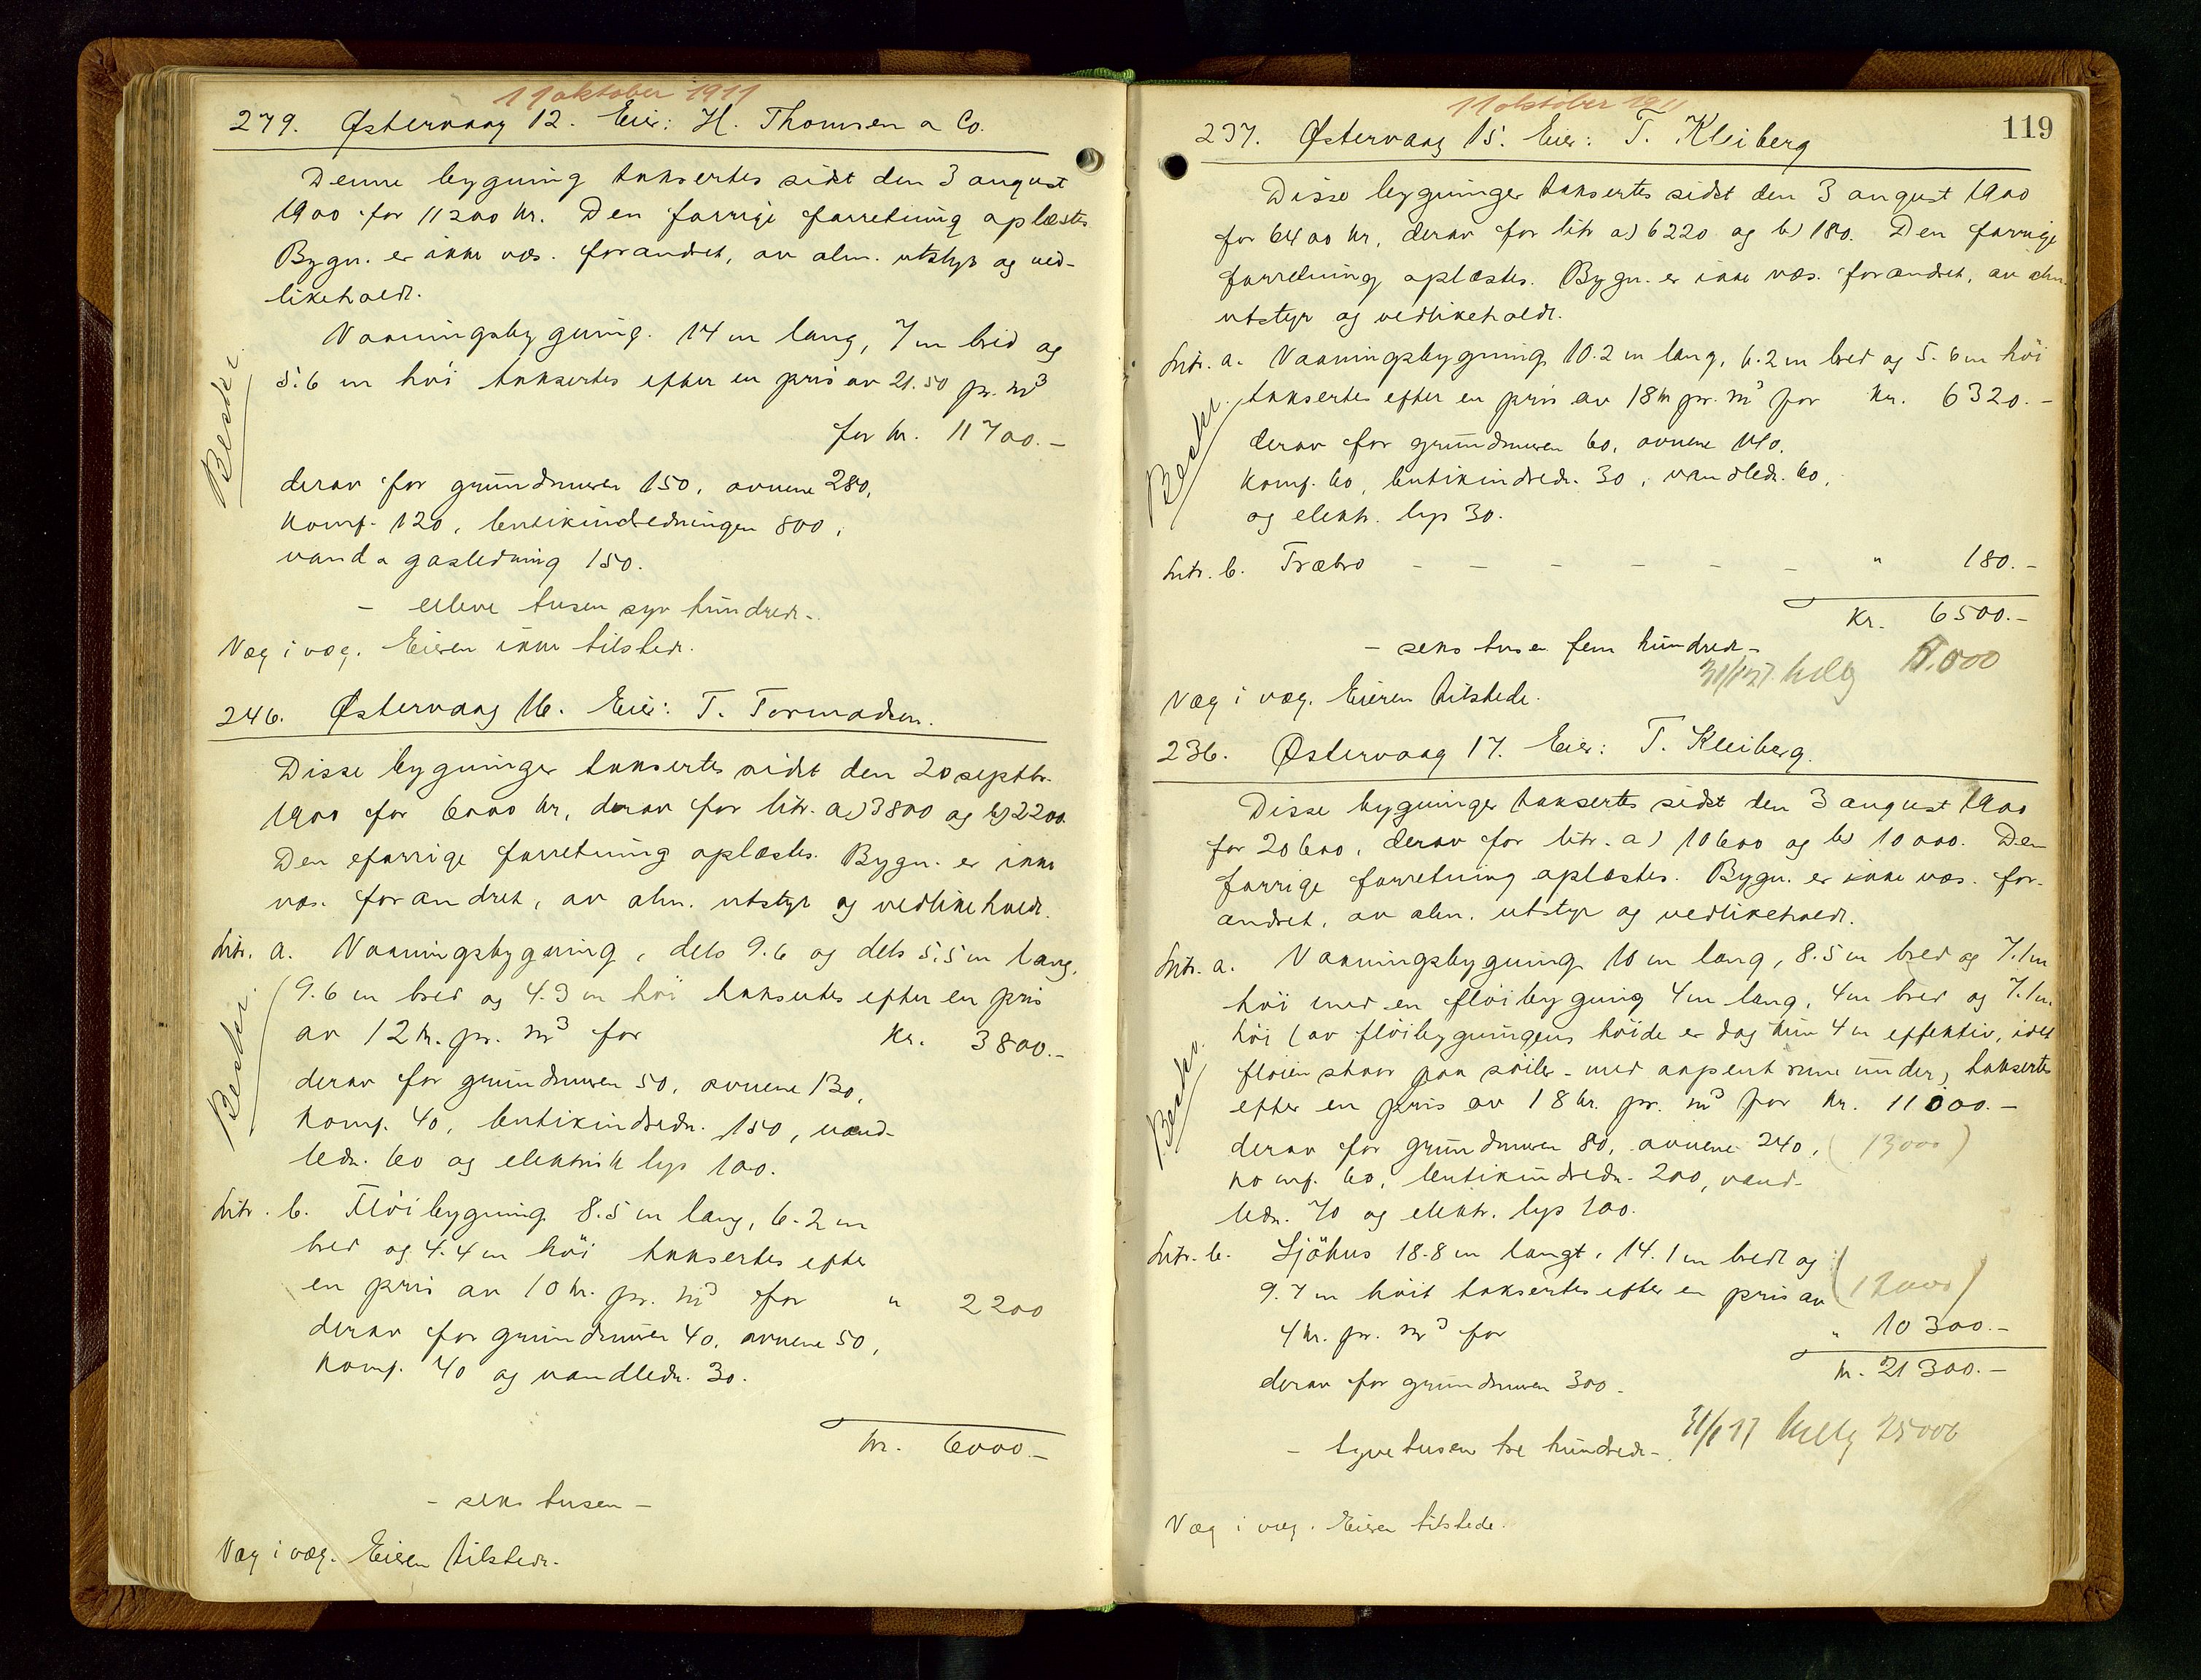 11 oktober 1911
279. Østervaag 12. Eier: H. Thomsen a Co.
Denne bygning taksertes sidst den 3 august
1900 for 11200 kr. Den forrige forretning oplæstes
Bygn. er ikke væs. forandret, av alm. utstyr og ved-
likeholdt.
Vaaningsbygning. 14 m lang, 7 m bred og
5.6 m høi taksertes efter en pris av 21.50 pr. m³
for kr. 11700.-
Beskr.
derav for grundmuren 150, ovnene 280,
komf. 120, butikindredningen 800,
vand a gasledning 150.
- elleve tusen syv hundrede -
Væg i væg. Eieren ikke tilstede.
246. Østervaag 16. Eier: T. Tormodsen.
Disse bygninger taksertes sidst den 20 septbr.
1900 for 6000 kr, derav for litr. a) 3800 og b) 2200
Den forrige forretning oplæstes. Bygn. er ikke
væs. forandret, av alm. utstyr og vedlikeholdt.
Litr. a. Vaaningsbygning, dels 9.6 og dels 5.5 m lang,
9.6 m bred og 4.3 m høi taksertes efter en pris
av 12 kr. pr. m³ for kr. 3800.-
Beskr.
derav for grundmuren 50, ovnene 130,
komf. 40, butikindredn. 150, vand-
ledn. 60 og elektrisk lys 100.
Litr. b. Fløibygning 8.5 m lang, 6.2 m
bred og 4.4 m høi taksertes efter
en pris av 10 kr. pr. m³ for " 2200
derav for grundmuren 40, ovnene 50,
komf. 40 og vandledn. 30.
kr. 6000.-
- seks tusen -
Væg i væg. Eieren tilstede.
11 oktober 1911
119
237. Østervaag 15. Eier: T. Kleiberg
Disse bygninger taksertes sidst den 3 august 1900
for 6400 kr, derav for litr a) 6220 og b) 180. Den forrige
forretning oplæstes. Bygn. er ikke væs. forandret, av alm.
utstyr og vedlikeholdt.
Litr. a. Vaaningsbygning 10.2 m lang, 6.2 m bred og 5.6 m høi
taksertes efter en pris av 18 kr pr. m³ for kr. 6320.-
Beskr.
derav for grundmuren 60, ovnene 140,
komf. 60, butikindredn. 30, vandledn. 60,
og elektr. lys 30.
Litr. b. Træbro - - - - - - " 180.-
Kr. 6500.-
- seks tusen fem hundrede -
31/1 17 .000
Væg i væg. Eieren tilstede.
236. Østervaag 17. Eier: T. Kleiberg.
Disse bygninger taksertes sidst den 3 august 1900
for 20600, derav for litr. a) 10600 og b) 10000. Den
forrige forretning oplæstes. Bygn. er ikke væs. for-
andret, av alm. utstyr og vedlikeholdt.
Litr. a. Vaaningsbygning 10 m lang, 8.5 m bred og 7.1 m
høi med en fløibygning 4 m lang, 4 m bred og 7.1 m.
høi (av fløibygningens høide er dog kun 4 m effektiv, idet
fløien staar paa søiler med aapent rum under) taksertes
efter en pris av 18 kr. pr. m³ for kr. 11000.-
Beskr.
derav for grundmuren 80, ovnene 240, (13000)
komf. 60, butikindredn. 200, vand-
ledn. 70 og elektr. lys 100.
Litr. b. Sjøhus 18.8 m langt, 14.1 m bredt og
9.7 m høit taksertes efter en pris av (12000)
4 kr. pr. m³ for " 10300.-
kr. 21300.-
derav for grundmuren 300.
- tyvetusen tre hundrede -
31/1 17 25000
Væg i væg. Eieren tilstede.